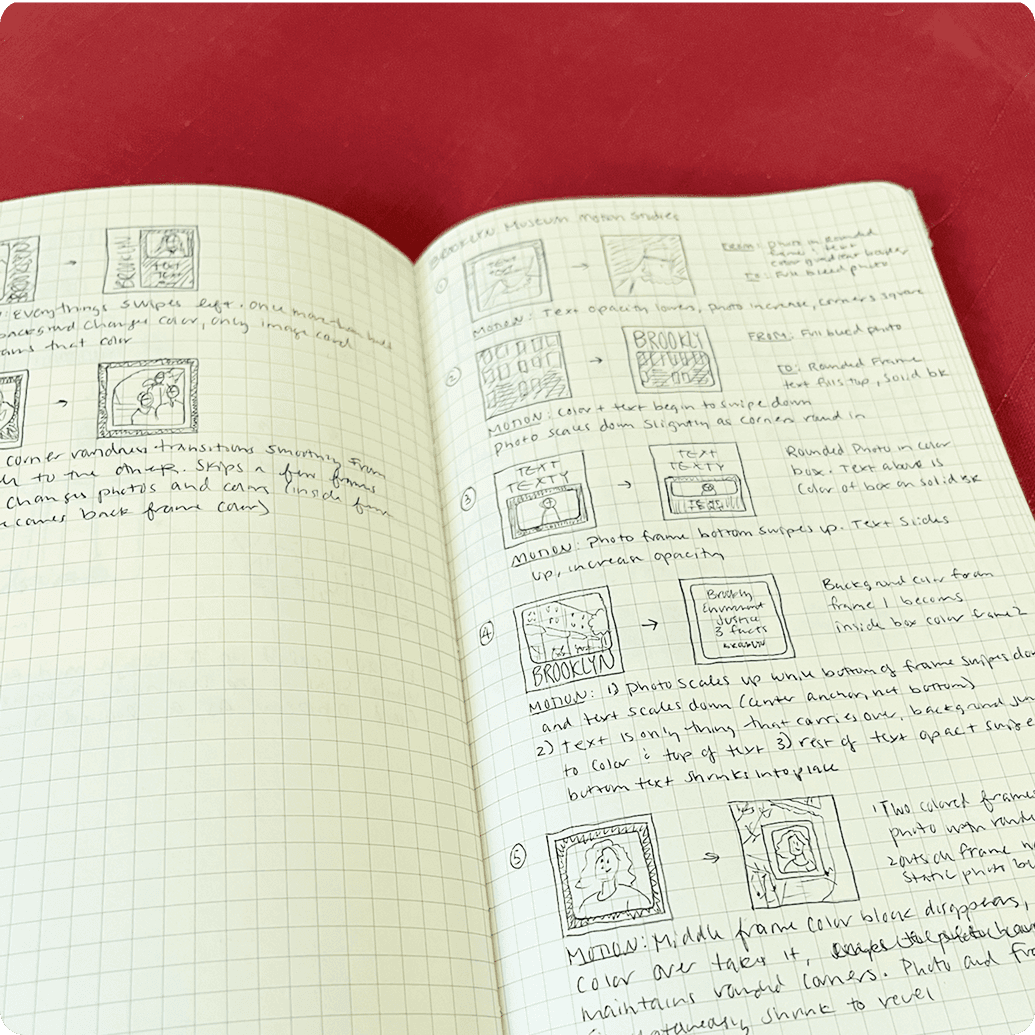 BROOKLYN
BROOKLYN
TEXT
TEXT
: Everythings swipes left. Once
backgrnd changes color, only image card
that color
corner randness transitions smoothly from
to the other. Skips a few frames
changes photos and color (inside
comes back frame color)
BROOKLYN Museum Motion Studies
TEXT
FROM: photo in rounded
frame, text
color background border
TO: Full bleed photo
MOTION: Text opacity lowers, photo increase, corners square
②
BROOKLY
FROM: Full bleed photo
TO: Rounded Frame
text fills top, solid bk
MOTION: Color + text begin to swipe down
Photo scales down slightly as corners round in
③
TEXT
TEXTY
TEXT
TEXTY
TEXT
Rounded Photo in color
box. Text above is
Color of box on solid bk
MOTION: Photo frame bottom swipes up. Text slides
up, increase opacity
④
BROOKLYN
Brooklyn
Environment
Justice
3 facts
Backgrnd color from
frame 1 becoms
inside box color frame 2
MOTION: 1) Photo scales up while bottom of frame swipes down
and text scales down (center anchor, not bottom)
2) Text is only thing that carries over, background
to color & top of text 3) rest of text
bottom text shrinks into place
⑤
Two colored frames
photo with
2 outs on frame
static photo
MOTION: Middle frame color block disappears,
color over takes it,
maintains rounded corners. Photo and
shrink to revel